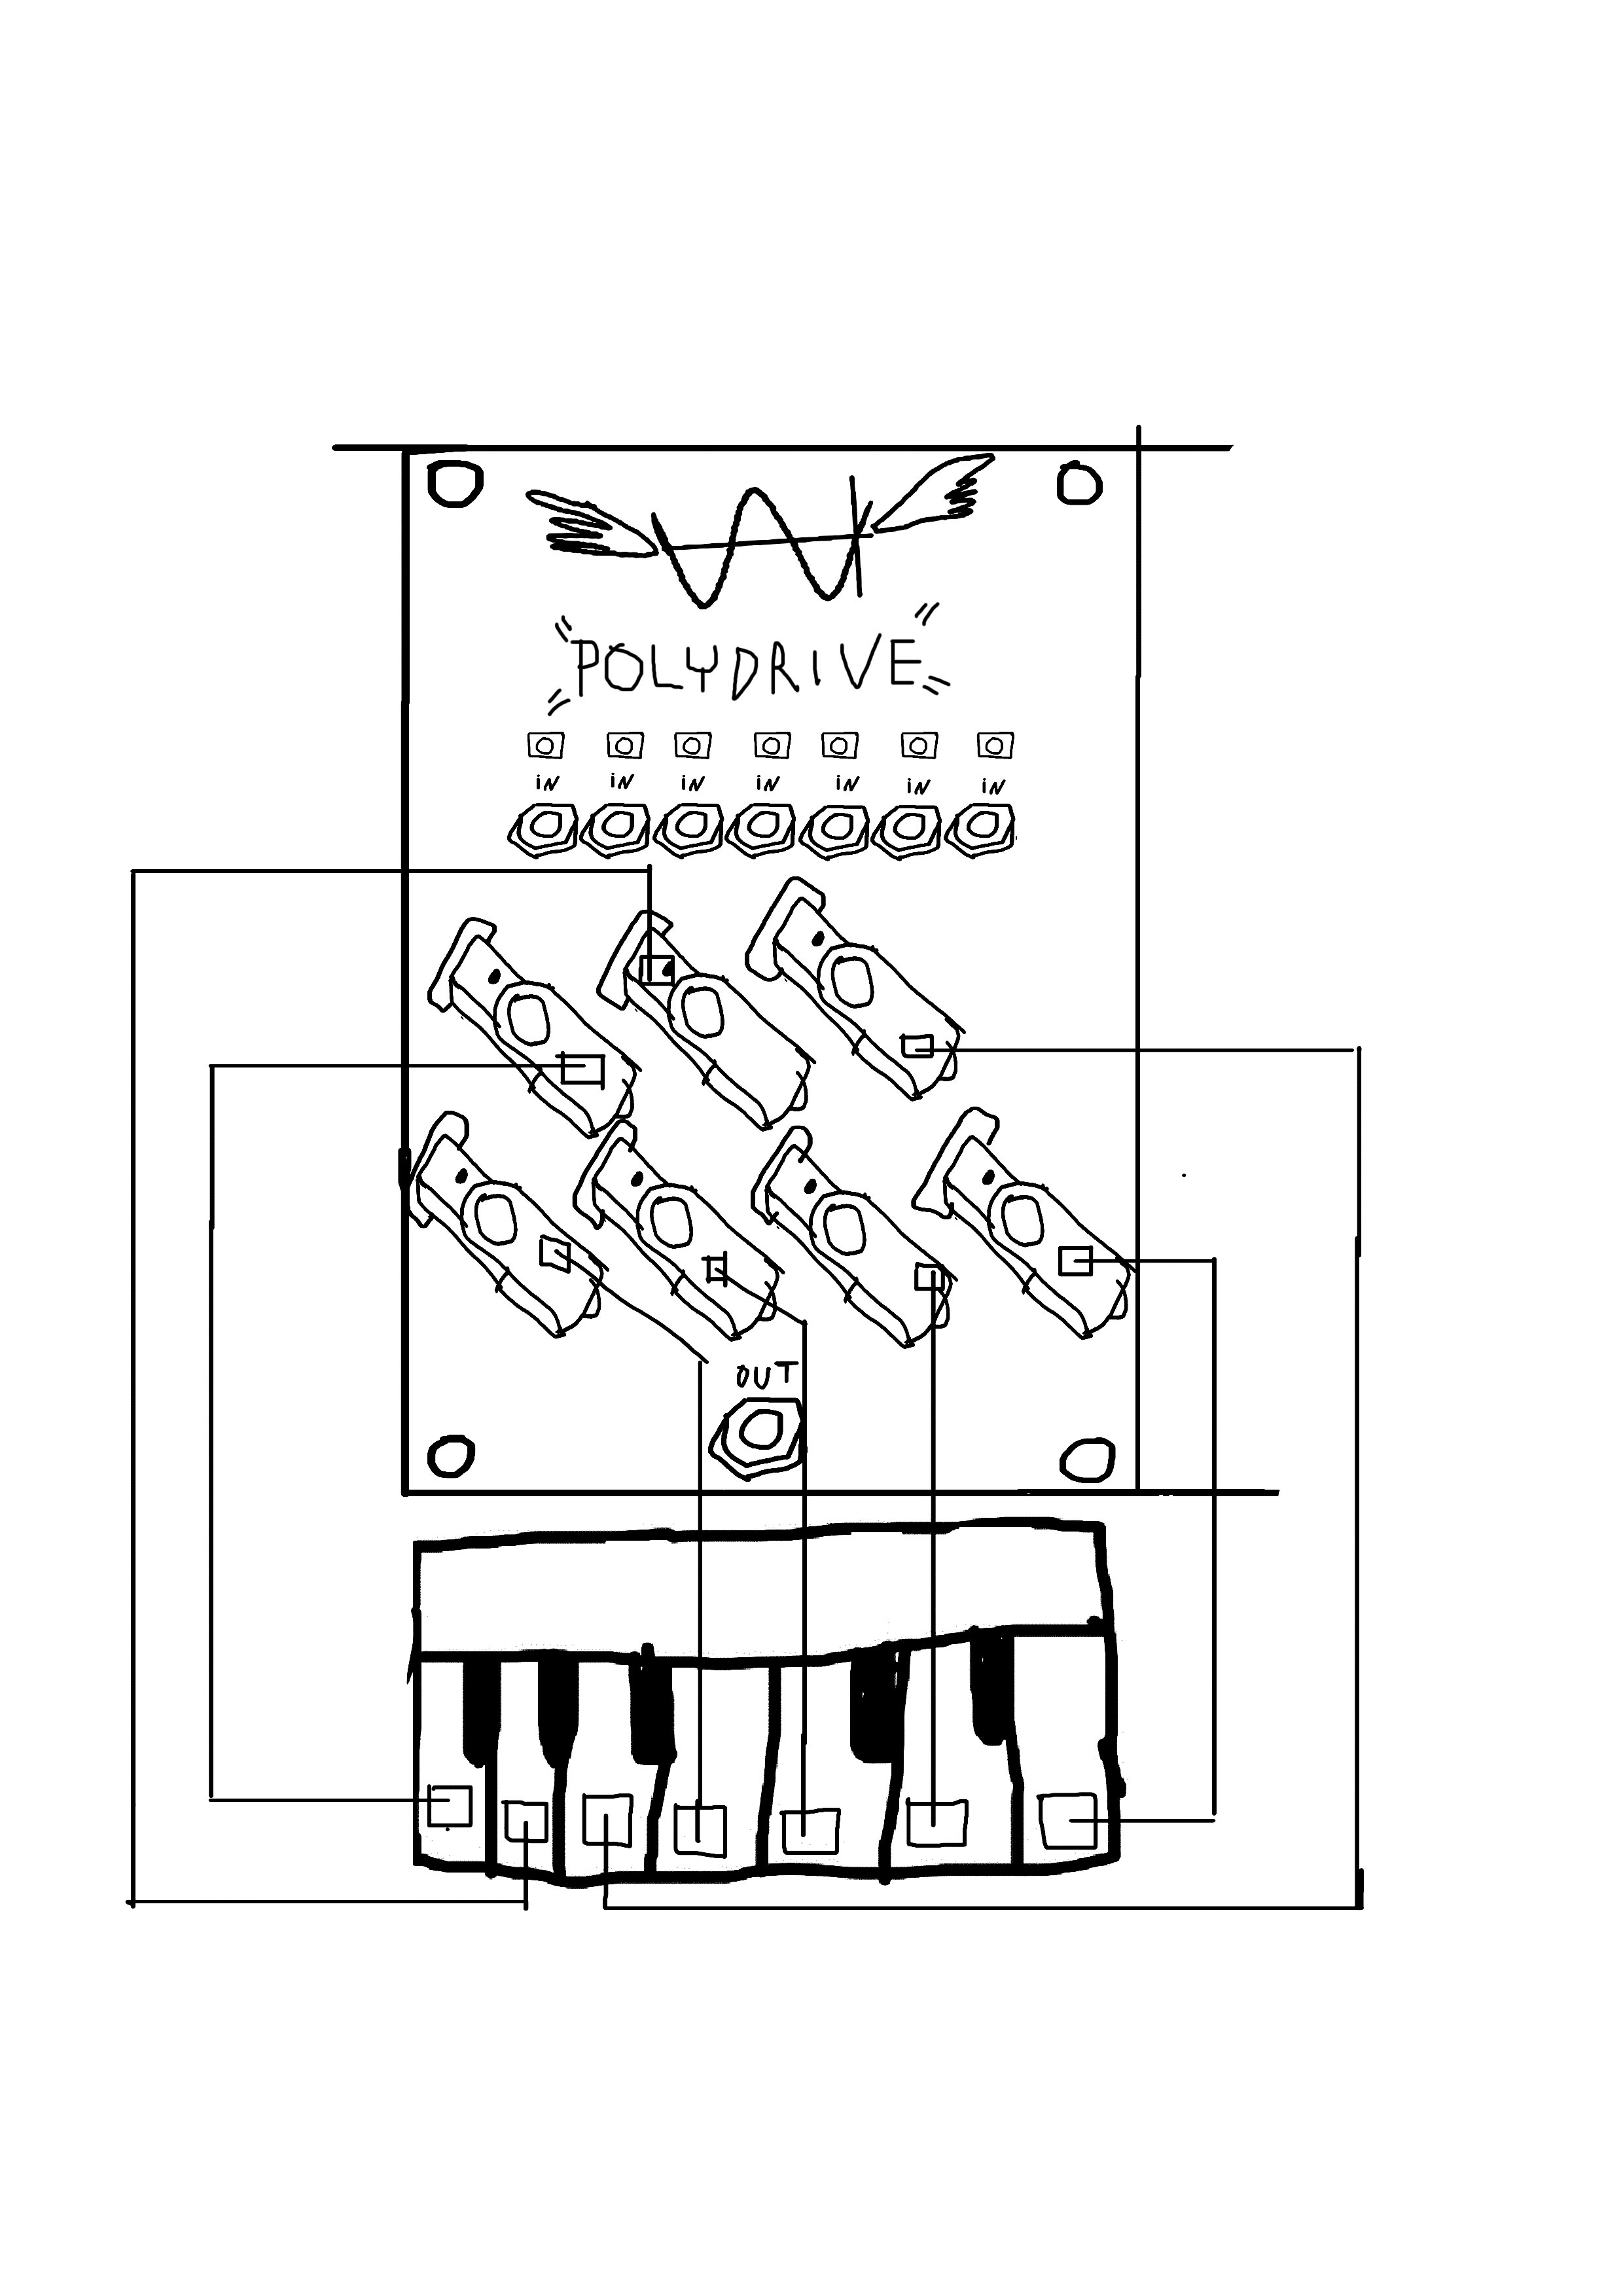 POLYDRIVE
iN iN iN iN iN iN iN
OUT